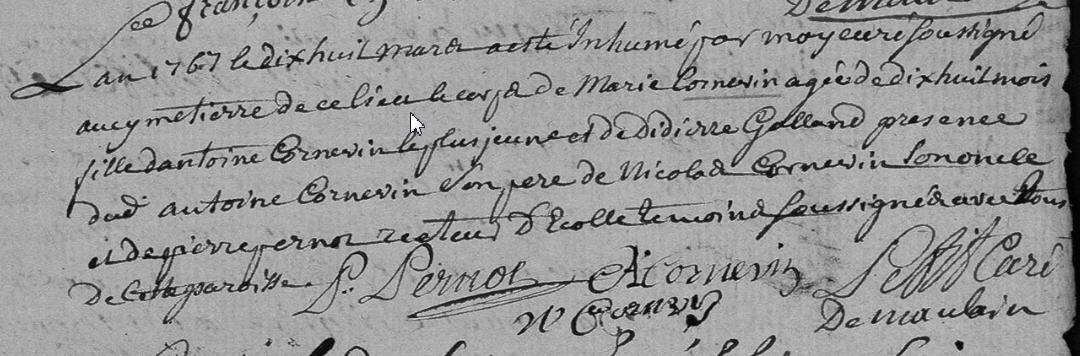 françois
Demaulain
L an 1767 le dix huit mars a esté Inhumé par moy curé soussigné
au cymetierre de ce lieu le corps de Marie Cornevin agée de dix huit mois
fille dantoine Cornevin le plus jeune et de didierre Galland presence
dud antoine Cornevin Son pere de Nicolas Cornevin Son oncle
et de pierre pernot recteur D'Ecolle temoins soussignés avec Nous
de cette paroisse P. Pernot A Cornevin Petitjean Curé
N Cornevin Demaulain